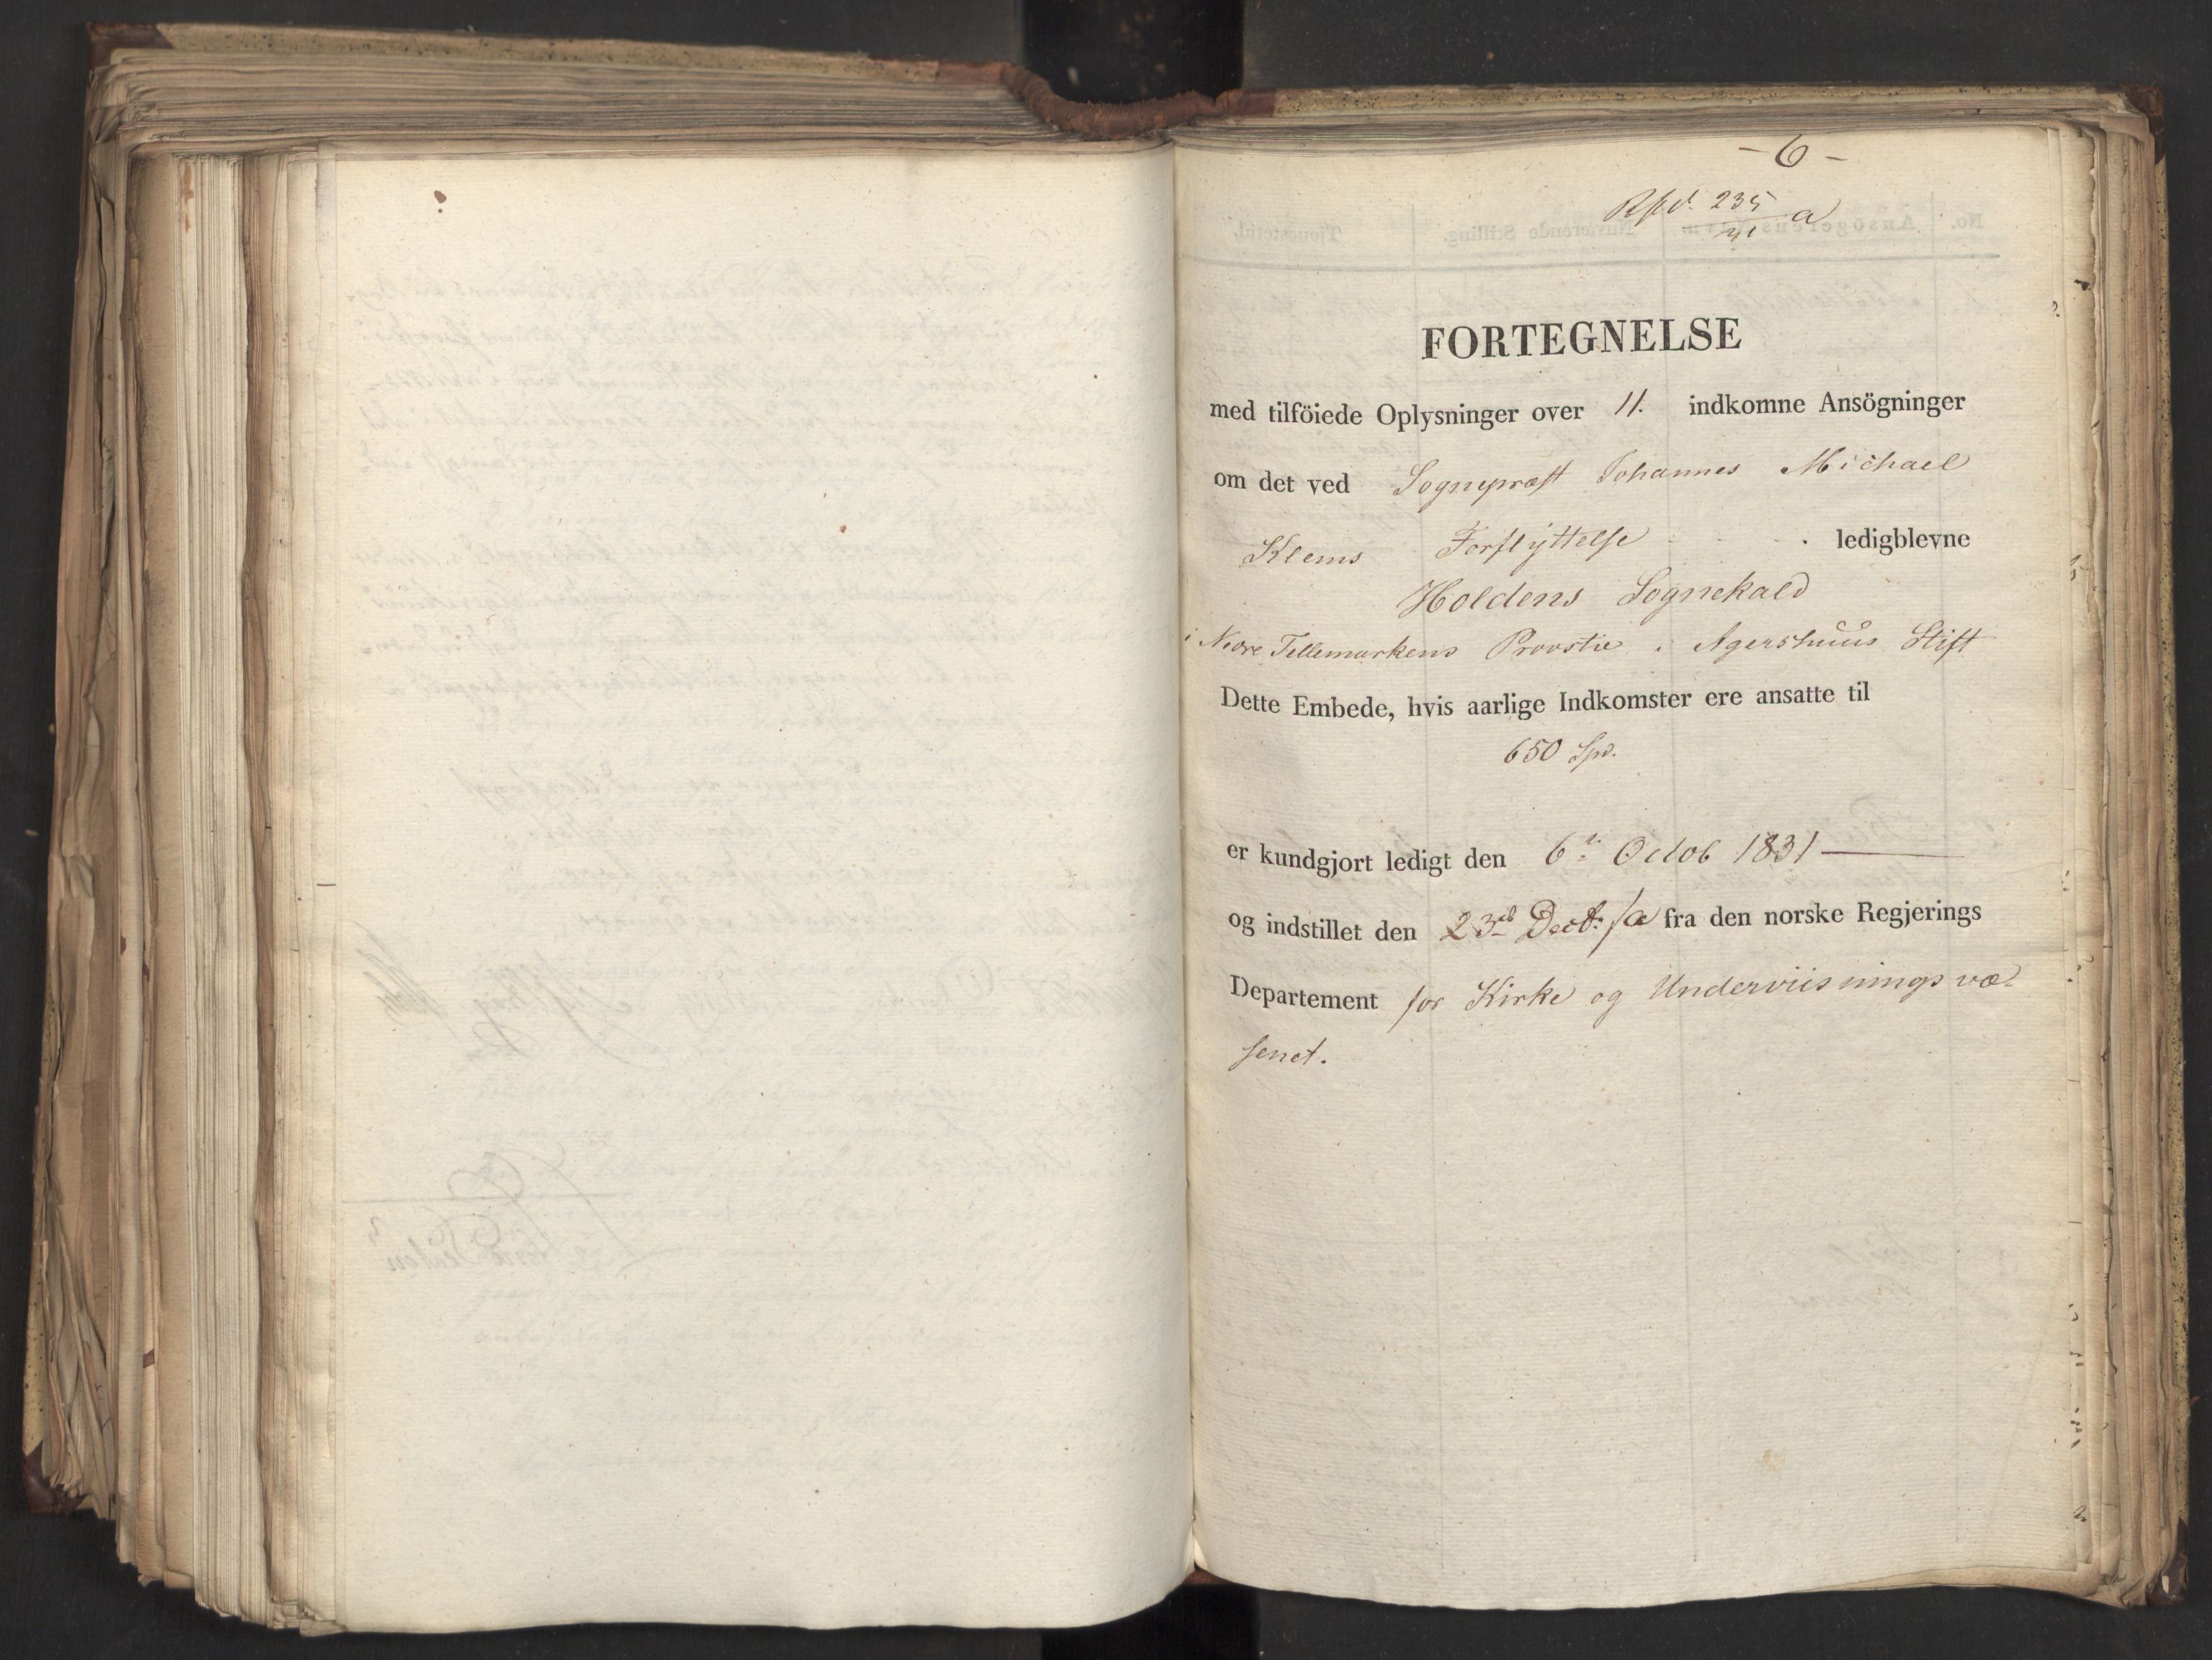 - 6 -
235 a
31
FORTEGNELSE
med tilföiede Oplysninger over 11. indkomne Ansögninger
om det ved Sognepræst Johannes Michael
Klems Forflyttelse ledigblevne
Holdens Sognekald
i Nedre Tellemarkens Provstie i Agershuus Stift
Dette Embede, hvis aarlige Indkomster ere ansatte til
650 Spd.
er kundgjort ledigt den 6te Octob 1831
og indstillet den 23d Decbr. s. a. fra den norske Regjerings
Departement for Kirke og Underviisningsvæ-
senet.